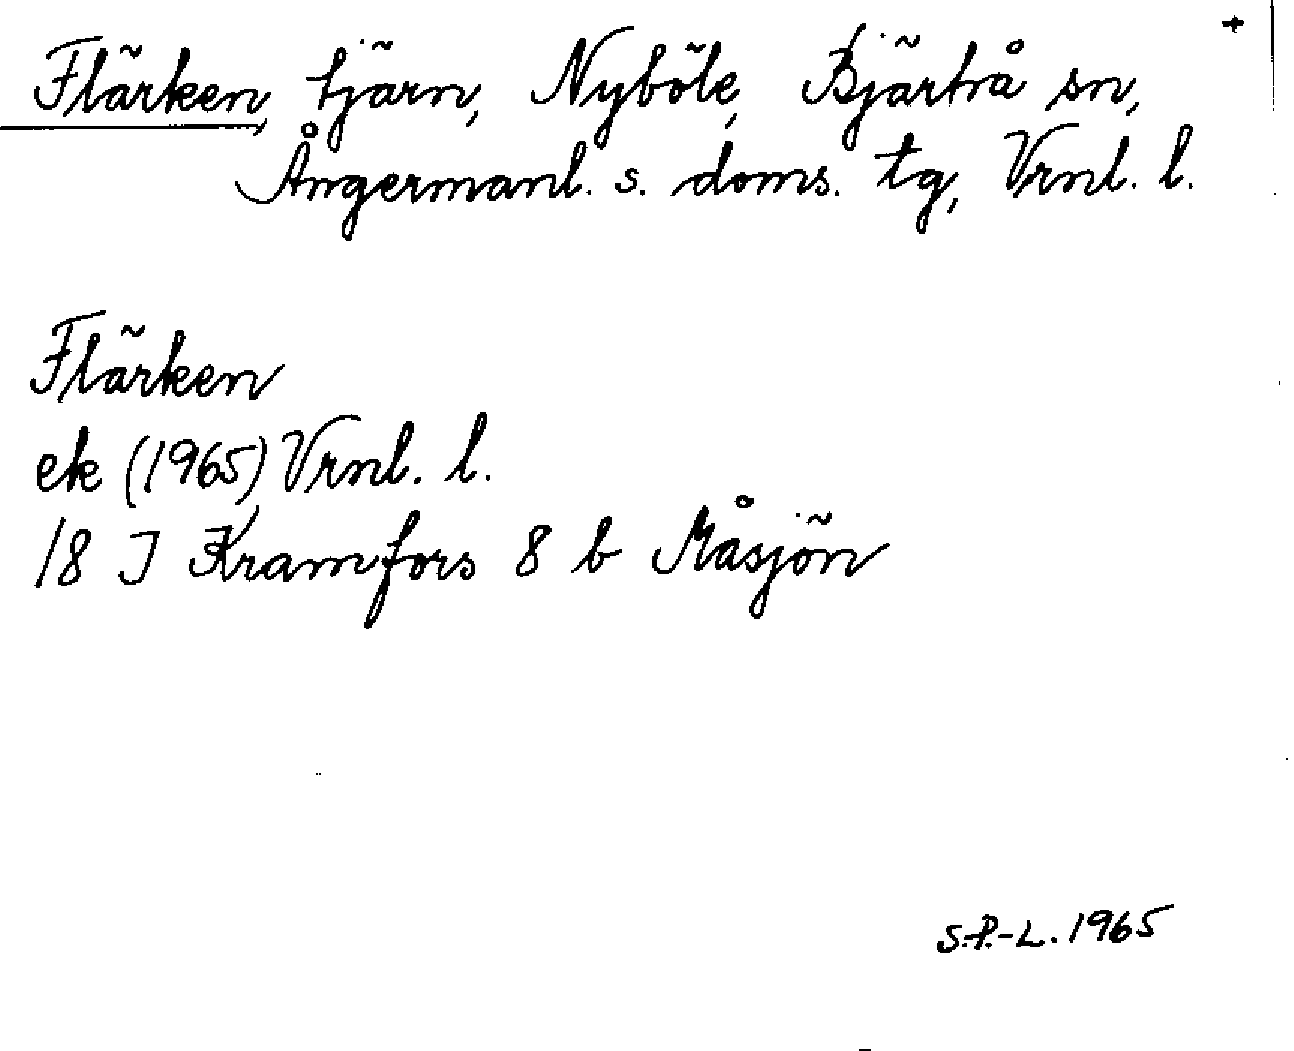 Flärken, tjärn, Nyböle, Bjärtrå sn,
Ångermanl. s. doms. tg, Vrnl. l.
Flärken
ek (1965) Vrnl. l.
18 I Kramfors 8 b Måsjön
S.P.-L. 1965